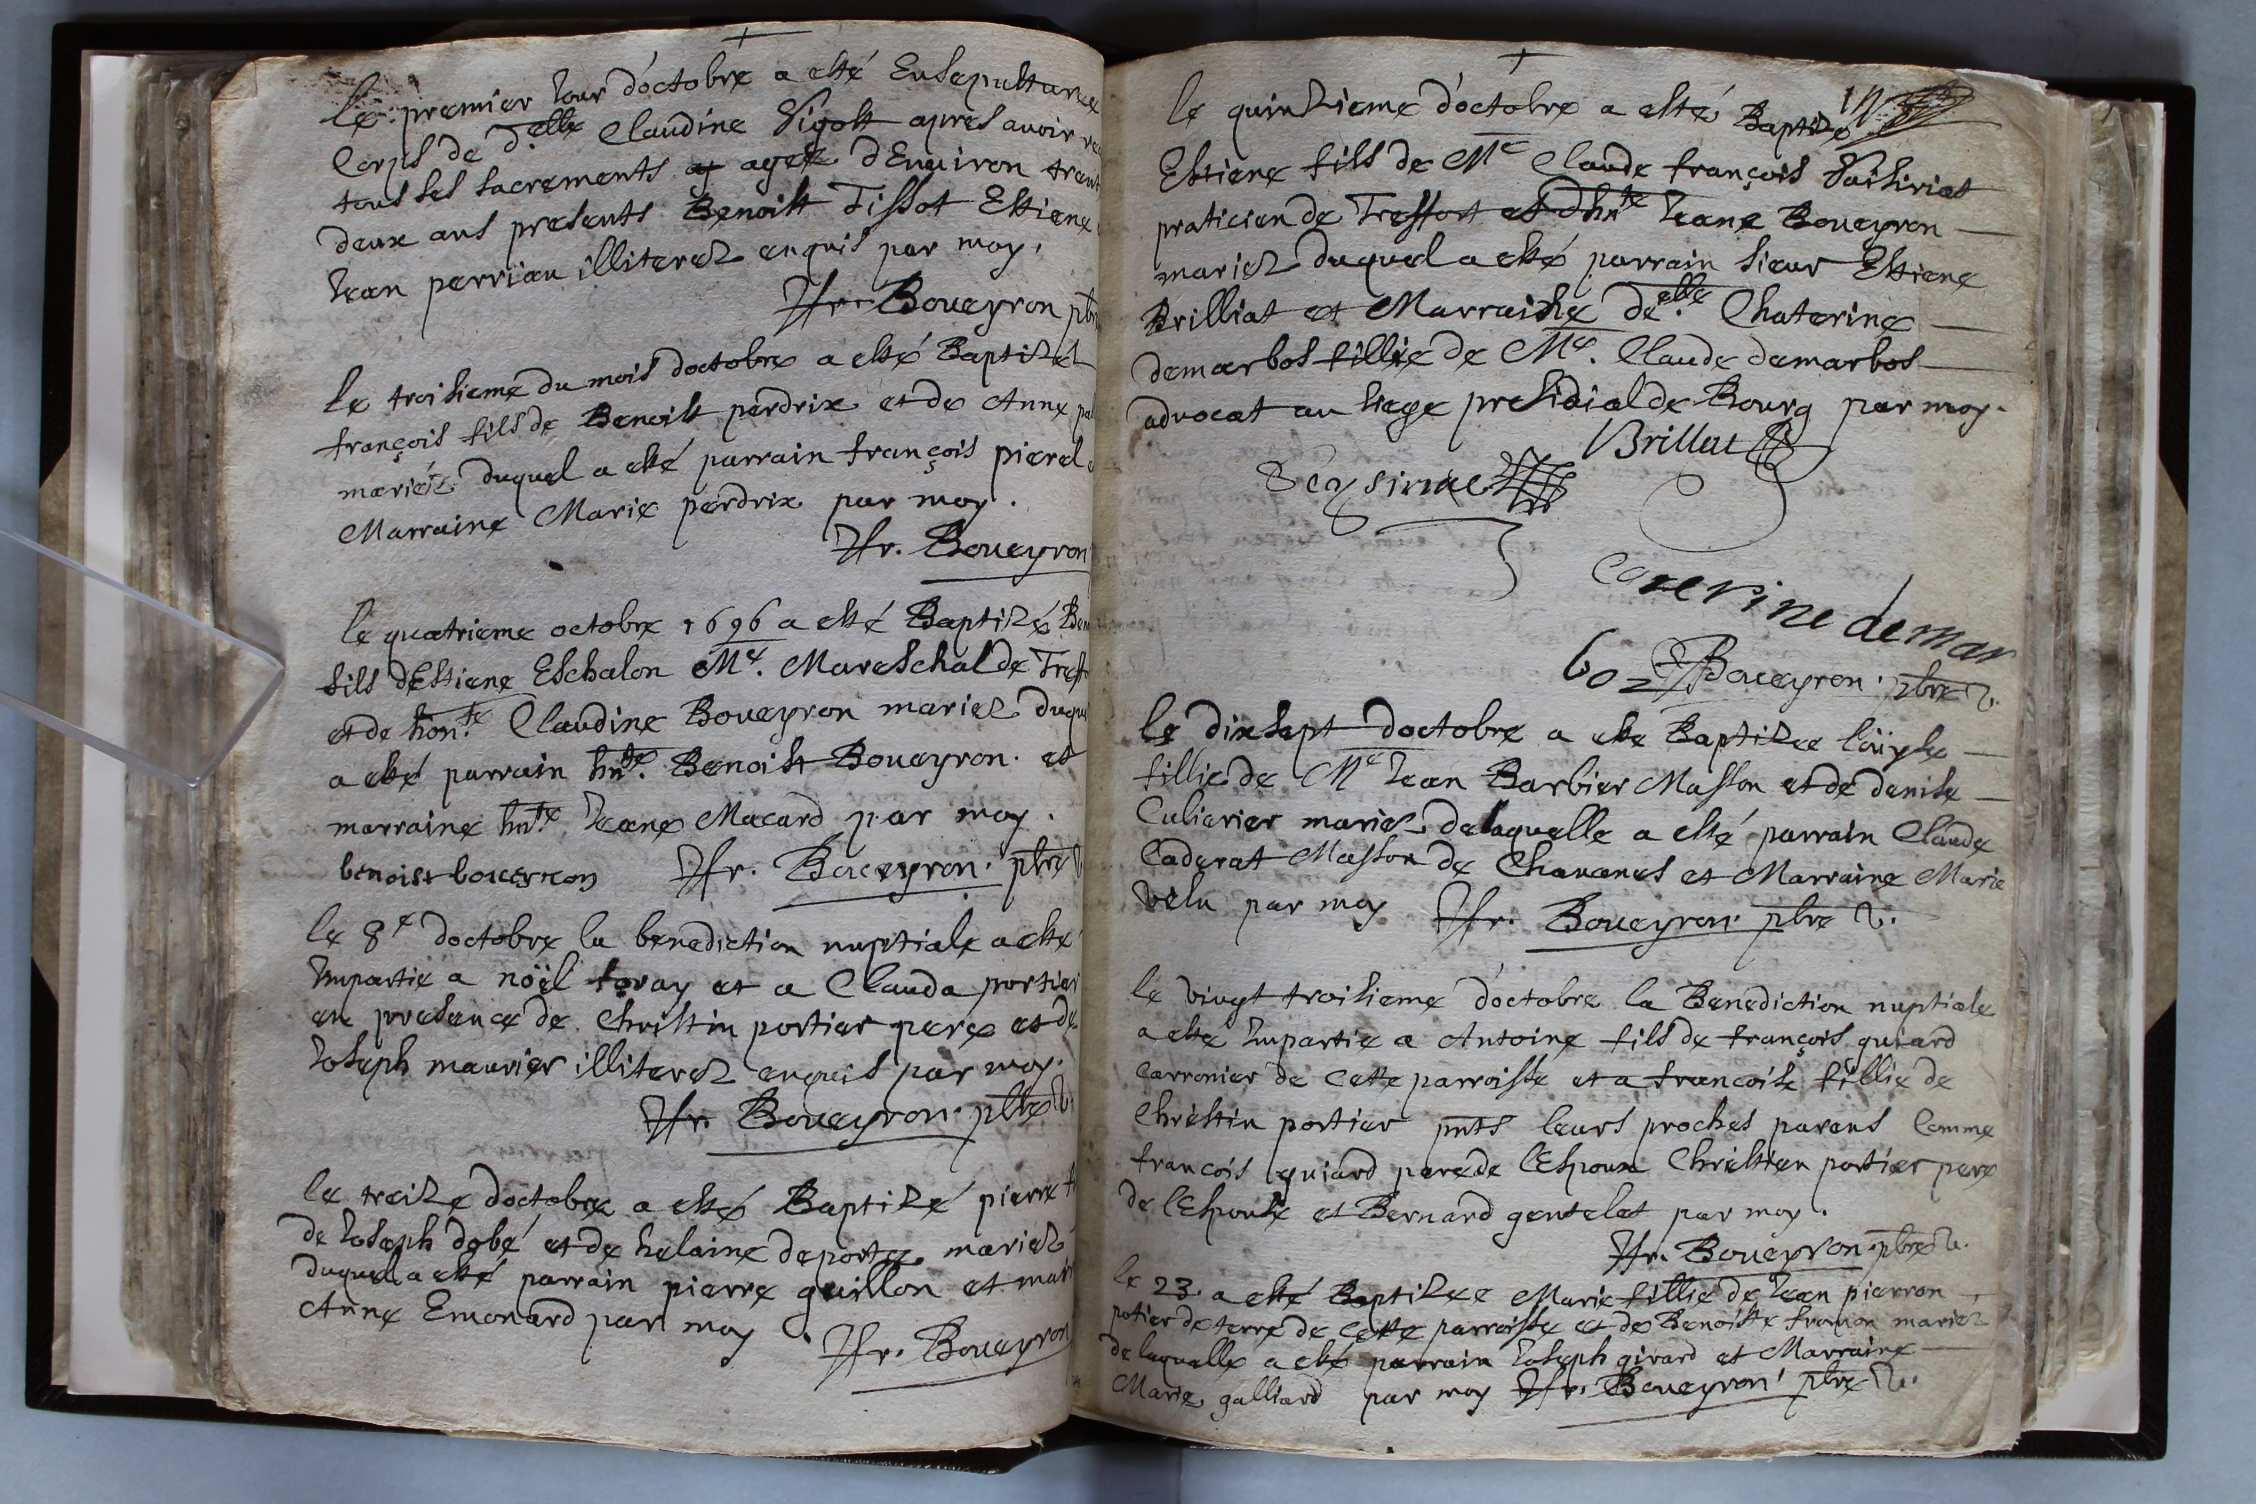 le premier Jour d'octobre a esté Ensepulturee
Corps de d.elle Claudine après avoir
tous les sacrements agee d'Environ
deux ans presents Benoist Tissot Estiene
Jean perrian illiterez enquis par moy.
Jfr. Boueyron
le troisieme du mois doctobre a esté Baptisé
françois fils de Benoist perdrix et de Anne
mariéz duquel a esté parrain françois
Marraine Marie perdrix par moy.
Jfr. Boueyron
le quatrieme octobre 1696 a esté Baptizé
fils dEstiene Eschalon Me. Mareschal de
et de hon.te Claudine Boueyron mariez
a esté parrain hn.te Benoist Boueyron. et
marraine hn.te Jeane Macard par moy.
benoist boueyron Jfr. Boueyron. pbre
le 8e doctobre la benediction nuptiale a esté
Impartie a noël foray et a Clauda portier
en presence de Christin portier pere et de
Joseph maurier illiterez enquis par moy.
Jfr. Boueyron. pbre
le treize doctobre a esté Baptizé pierre
de Joseph dobé et de helaine deportes mariez
duquel a esté parrain pierre guillon et
Anne Emonard par moy
Jfr. Boueyron
le quinzieme d'octobre a esté Baptizé
Estiene fils de Me Claude françois
praticien de Treffort et dhn.te Jeane Boueyron
mariez duquel a esté parrain sieur Estiene
Brilliat et Marraine de.elle Chaterine
demarbos fillie de Me. Claude demarbos
advocat au siege presidial de Bourg par moy.
Brillat
caterine demar
boz Boueyron. pbre v.
le dixsept doctobre a esté Baptizee loüyse
fillie de Me Jean Barbier Masson et de denise
Culierier mariez delaquelle a esté parrain Claude
Caderat Masson de Chavanes et Marraine Marie
Velu par moy Jfr. Boueyron. pbre v.
le vingt troisieme d'octobre la Benediction nuptiale
a este Impartie a Antoine fils de françois guiard
Carronier de Cette parroisse et a francoise fillie de
Chréstin portier pnts leurs proches parans Comme
francois guiard pere de l'Espoux Chréstien portier pere
de l'Espouse et Bernard gentelet par moy.
Jfr. Boueyron. pbre v.
le 23. a esté Baptizee Marie fillie de Jean pierron
potier de terre de Cette parroisse et de Benoiste fromon mariez
de laquelle a esté parrain Joseph girard et Marraine
Marie galliard par moy Jfr. Boueyron. pbre v.